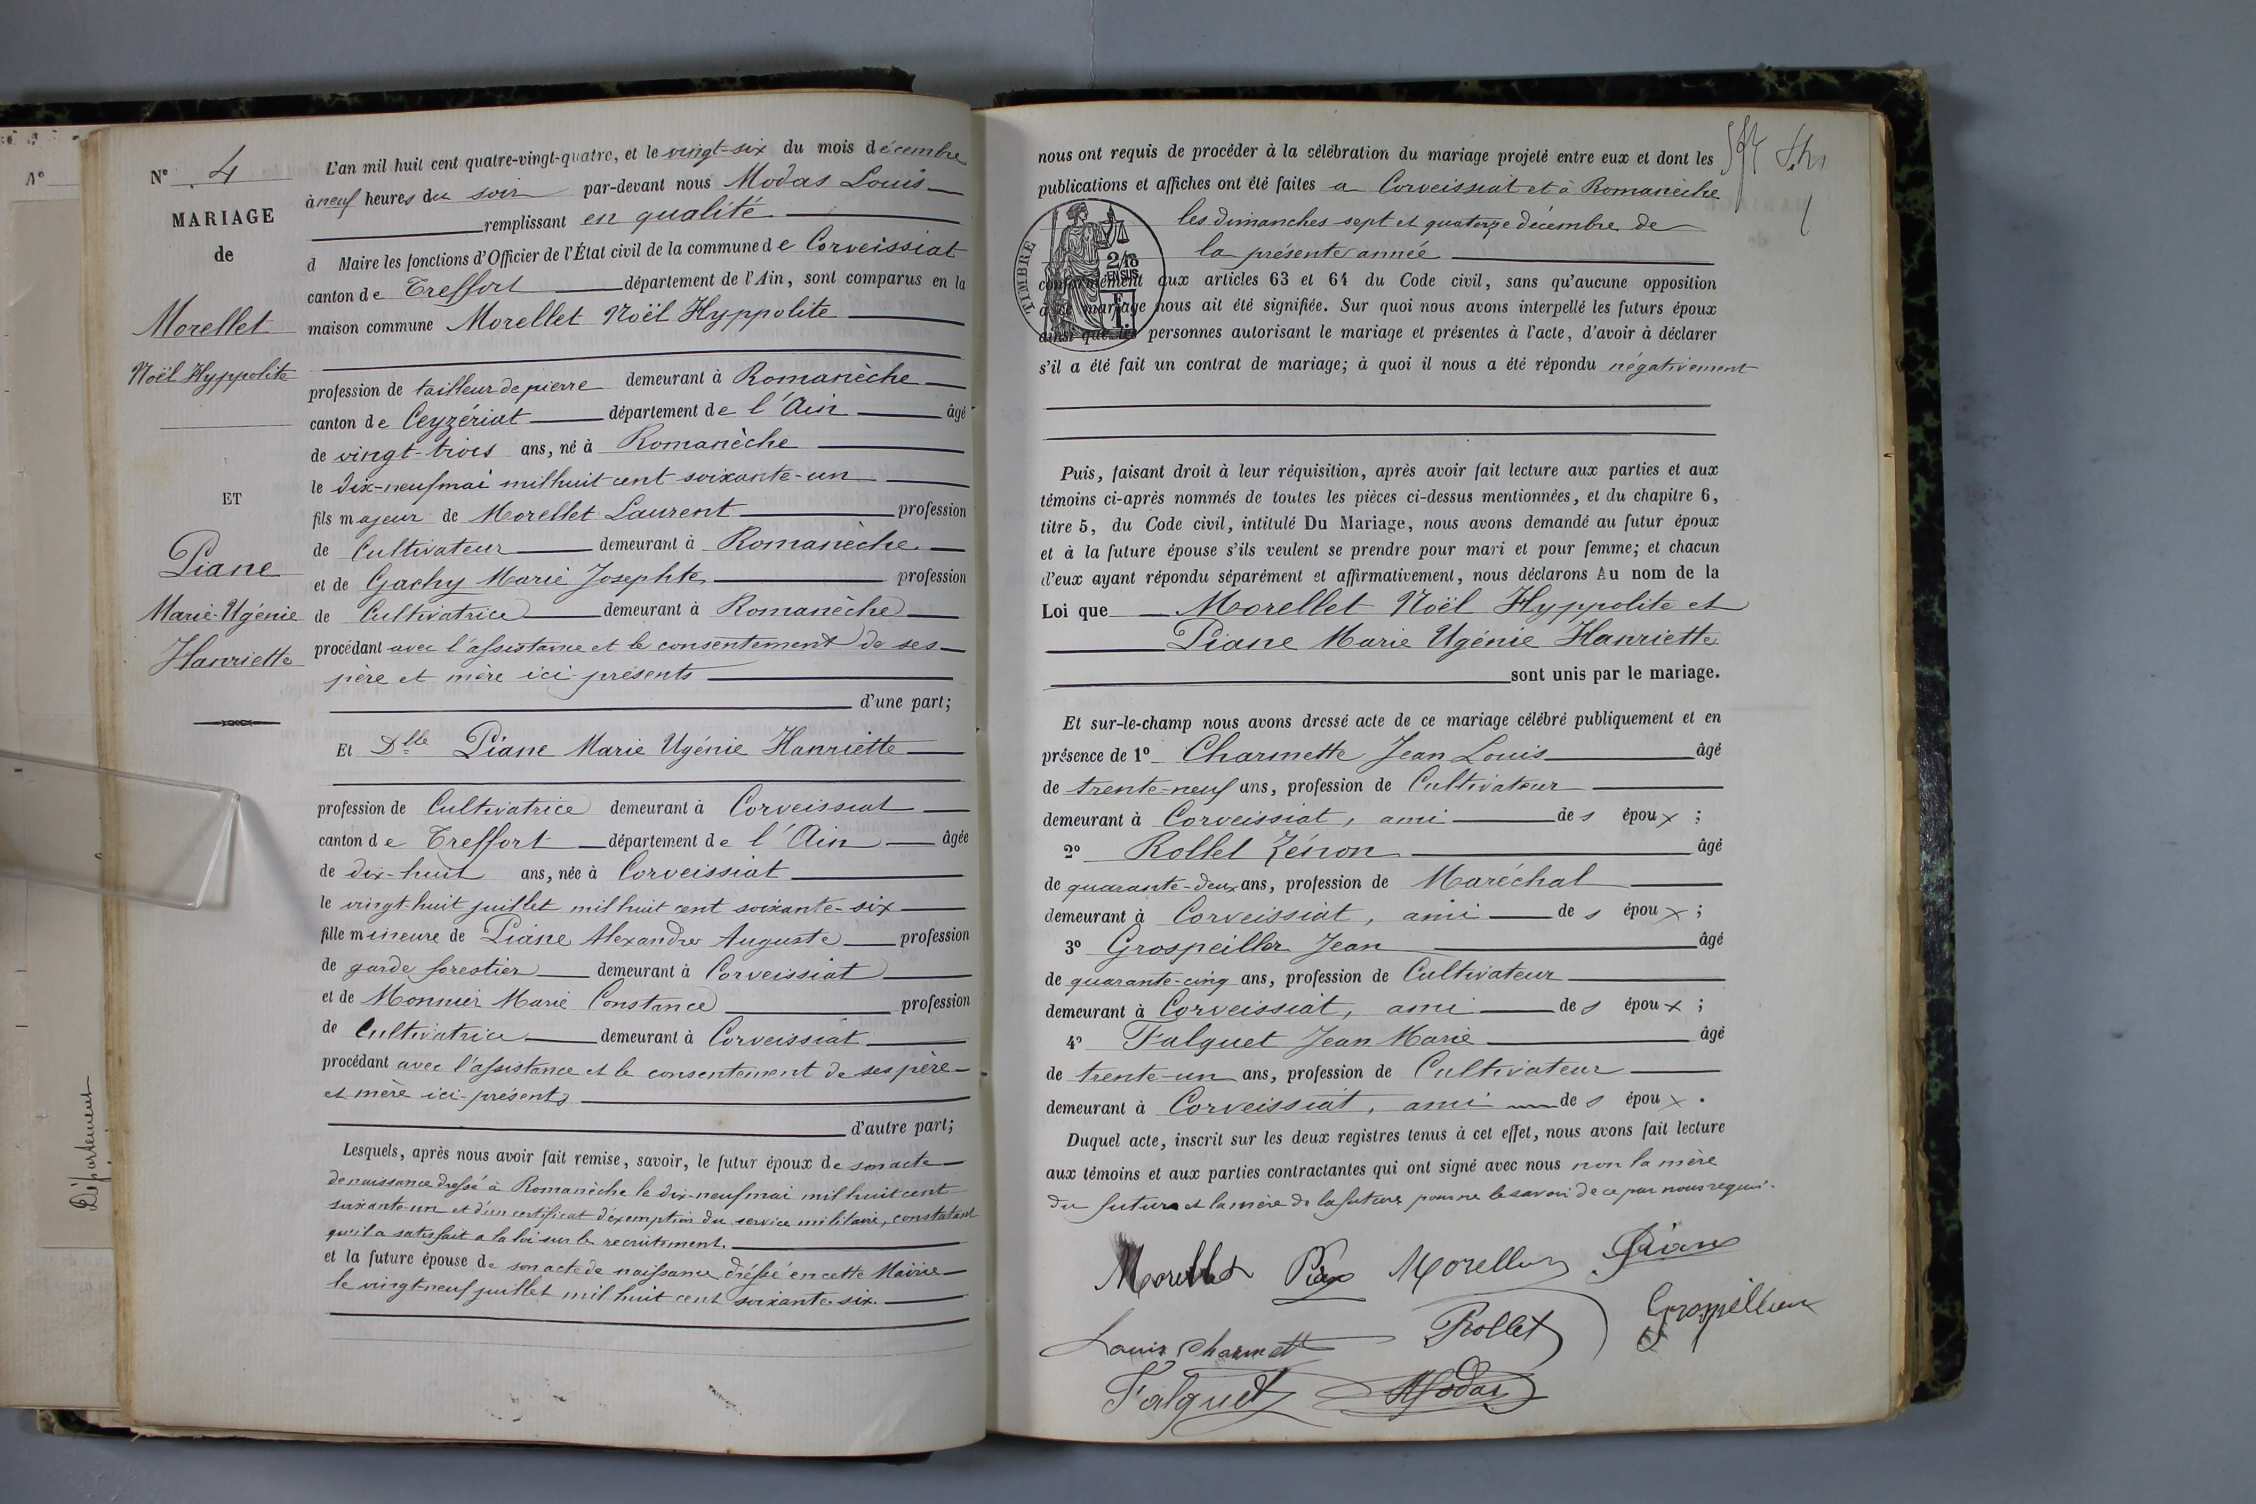 N°
Département
N° 4
MARIAGE
de
Morellet
Noël Hyppolite
ET
Piane
Marie-Ugénie
Hanriette
L'an mil huit cent quatre-vingt-quatre, et le vingt-six du mois décembre
à neuf heures du soir par-devant nous Modas Louis
remplissant en qualité
d Maire les fonctions d'Officier de l'État civil de la commune de Corveissiat
canton de Treffort département de l'Ain, sont comparus en la
maison commune Morellet Noël Hyppolite
profession de tailleur de pierre demeurant à Romanèche
canton de Ceyzériat département de l'Ain âgé
de vingt-trois ans, né à Romanèche
le dix-neuf mai mil huit cent soixante-un
fils majeur de Morellet Laurent profession
de Cultivateur demeurant à Romanèche
et de Gachy Marie Josephte profession
de Cultivatrice demeurant à Romanèche
procédant avec l'assistance et le consentement de ses
père et mère ici présents
d'une part;
Et Dlle Piane Marie Ugénie Hanriette
profession de Cultivatrice demeurant à Corveissiat
canton de Treffort département de l'Ain âgée
de dix-huit ans, née à Corveissiat
le vingt-huit juillet mil huit cent soixante-six
fille mineure de Piane Alexandre Auguste profession
de garde forestier demeurant à Corveissiat
et de Monnier Marie Constance profession
de Cultivatrice demeurant à Corveissiat
procédant avec l'assistance et le consentement de ses père
et mère ici-présents
d'autre part;
Lesquels, après nous avoir fait remise, savoir, le futur époux de son acte
de naissance dressé à Romanèche le dix-neuf mai mil huit cent
soixante-un et d'un certificat d'éxemption du service militaire, constatant
qu'il a satisfait a la loi sur le recrutement.
et la future épouse de son acte de naissance dréssé en cette Mairie
le vingt-neuf juillet mil huit cent soixante six.
nous ont requis de procéder à la célébration du mariage projeté entre eux et dont les
publications et affiches ont été faites a Corveissiat et à Romanèche
les dimanches sept et quatorze décembre de
la présente année
TIMBRE
2/10
EN SUS
conformément aux articles 63 et 64 du Code civil, sans qu'aucune opposition
à ce mariage nous ait été signifiée. Sur quoi nous avons interpellé les futurs époux
ainsi que les personnes autorisant le mariage et présentes à l'acte, d'avoir à déclarer
s'il a été fait un contrat de mariage; à quoi il nous a été répondu négativement
Puis, faisant droit à leur réquisition, après avoir fait lecture aux parties et aux
témoins ci-après nommés de toutes les pièces ci-dessus mentionnées, et du chapitre 6,
titre 5, du Code civil, intitulé Du Mariage, nous avons demandé au futur époux
et à la future épouse s'ils veulent se prendre pour mari et pour femme; et chacun
d'eux ayant répondu séparément et affirmativement, nous déclarons Au nom de la
Loi que Morellet Noël Hyppolite et
Piane Marie Ugénie Hanriette
sont unis par le mariage.
Et sur-le-champ nous avons dressé acte de ce mariage célébré publiquement et en
présence de 1° Charmette Jean Louis âgé
de trente-neuf ans, profession de Cultivateur
demeurant à Corveissiat, ami des époux;
2° Rollet Zénon âgé
de quarante-deux ans, profession de Maréchal
demeurant à Corveissiat, ami des époux;
3° Grospeiller Jean âgé
de quarante-cinq ans, profession de Cultivateur
demeurant à Corveissiat, ami des époux;
4° Falquet Jean Marie âgé
de trente-un ans, profession de Cultivateur
demeurant à Corveissiat, ami des époux.
Duquel acte, inscrit sur les deux registres tenus à cet effet, nous avons fait lecture
aux témoins et aux parties contractantes qui ont signé avec nous non la mère
du futur et la mère de la future pour ne le savoir de ce par nous requis.
Morellet Piane Morellet Piane
Louis Charmette Rollet Grospellier
Falquet Modas